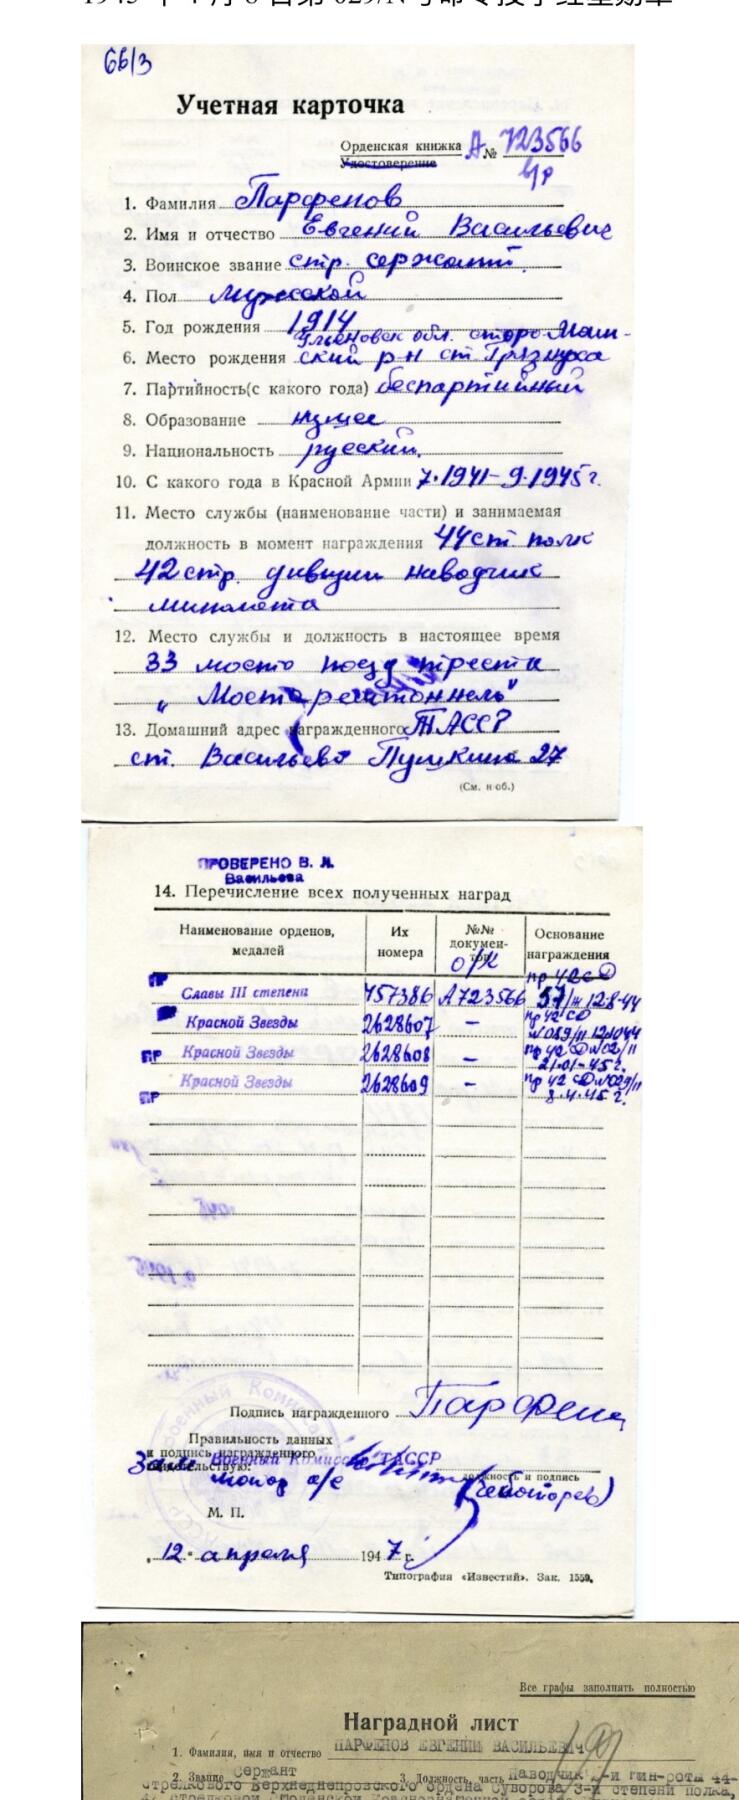 1945 年 4 月 8 日第 029/N号命令授予红星勋章
66/3
Учетная карточка
Орденская книжка А № 723566
Удостоверение
1. Фамилия Парфенов
2. Имя и отчество Евгений Васильевич
3. Воинское звание стр. сержант
4. Пол мужской
5. Год рождения 1914
Ульяновск обл. старо-Маин-
6. Место рождения ский р-н ст. Грязнуха
7. Партийность(с какого года) беспартийный
8. Образование низшее
9. Национальность русский.
10. С какого года в Красной Армии 7.1941-9.1945г.
11. Место службы (наименование части) и занимаемая
должность в момент награждения 44 ст. полк
42 стр. дивизии наводчик
миномета
12. Место службы и должность в настоящее время
33 мосто поезд треста
13. Домашний адрес награжденного ТАССР
ст. Васильево Пушкина 27
(См. н об.)
ПРОВЕРЕНО В. Л.
Васильева
14. Перечисление всех полученных наград
Наименование орденов, медалей Их номера №№ докумен- тов Основание награждения
о/к
пр 42 сД
ПР Славы III степени 457386 А723566 57/н 12.8.44
Красной Звезды 2628607 — пр 42 сД
ПР Красной Звезды 2628608 — 21.01.45г.
Красной Звезды 2628609 — пр 42 сД №029/н
ПР 8.4.45 г.
Подпись награжденного Парфенов
Правильность данных
и подпись награжденного
свидетельствую:
Зам Военный Комиссар ТАССР
майор а/с
должность и подпись
М. П.
„12" апреля 1947 г.
Типография «Известий». Зак. 1559.
Все графы заполнять полностью
Наградной лист
1. Фамилия, имя и отчество ПАРФЕНОВ ЕВГЕНИЙ ВАСИЛЬЕВИЧ
2. Звание Сержант 3. Должность, часть Наводчик -й мин-роты 44-
стрелкового Верхнеднепровского ордена Суворова 3-й степени полка,